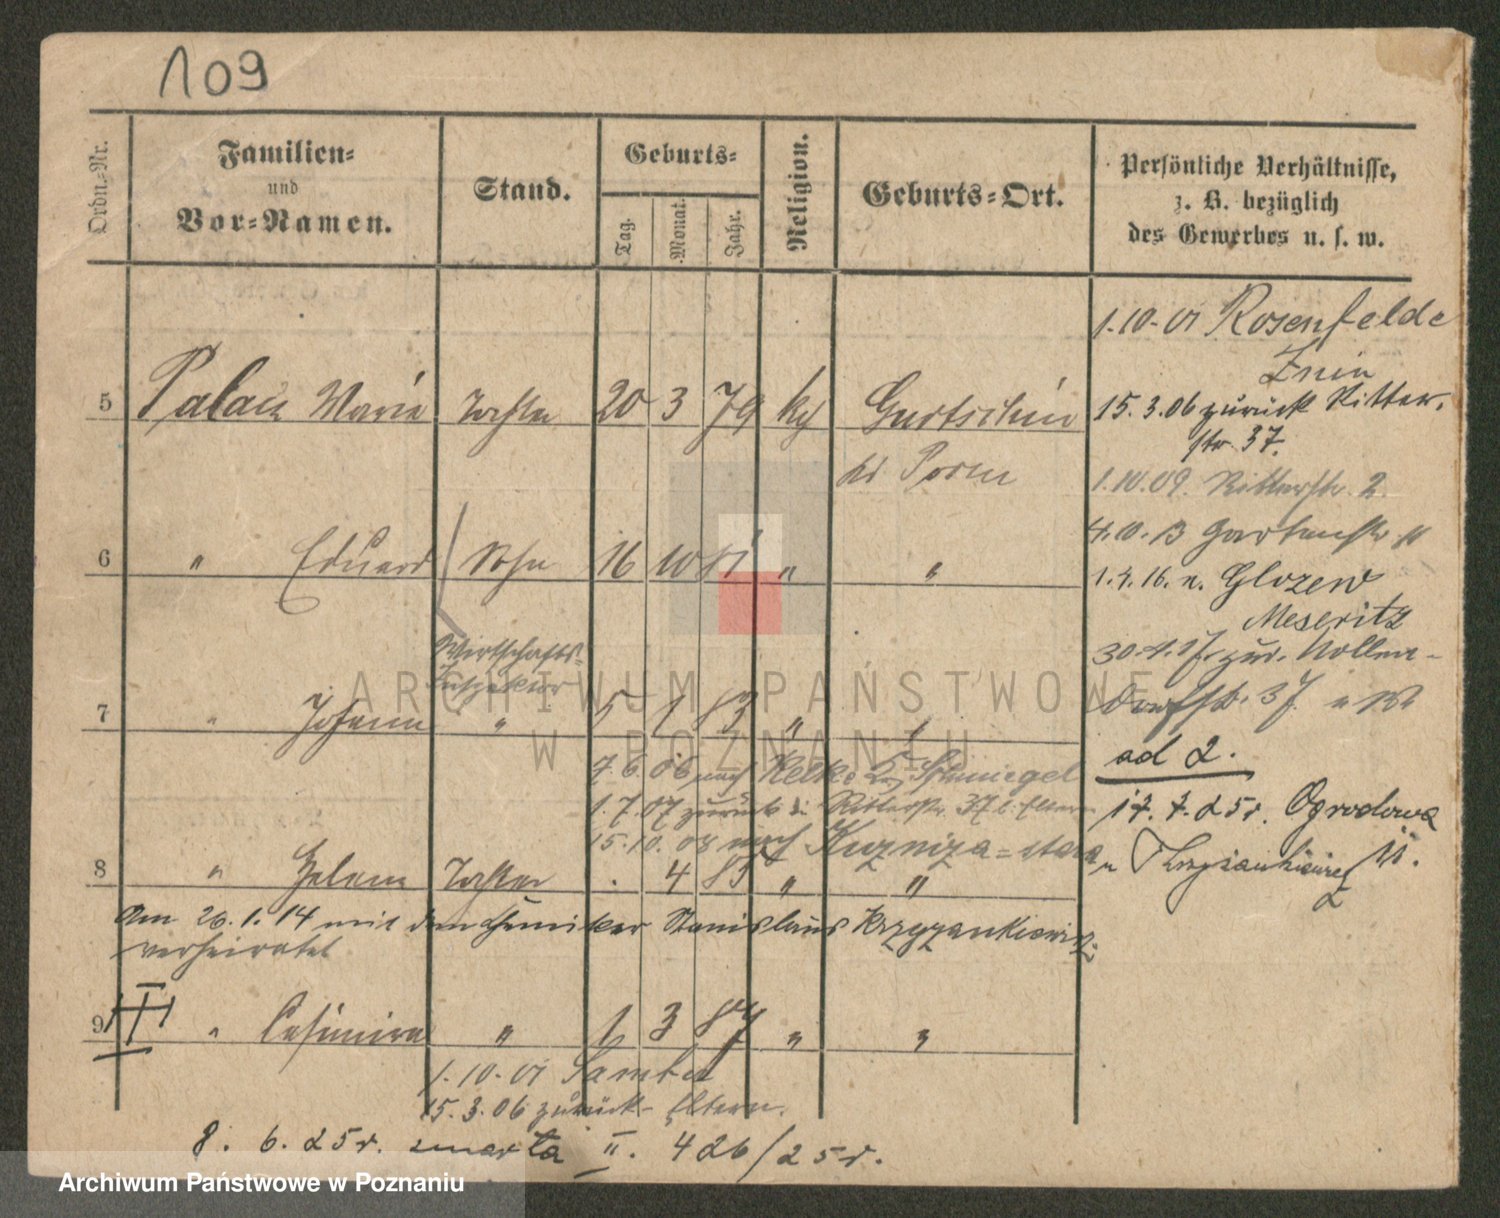 109
Ordn.-Nr.
Familien-
und
Vor-Namen.
Stand.
Geburts-
Tag.
Monat.
Jahr.
Religion.
Geburts-Ort.
Persönliche Verhältnisse,
z. B. bezüglich
des Gewerbes u. s. w.
1.10-01 Rosenfelde
Znin
5 Marie Tochter 20 3 79 Gurtschin
15.3.06 zurück Ritter-
str. 37.
bei Posen
1.10.09. Ritterstr. 2
4.10.13 Gartenstr.
6 " Eduard Sohn 16 10 81 " "
1.4.16. n. Glozew
Meseritz
Wirtschafts-
Inspektor
7 " Johann " 5 1 83 " "
7.6.06 nach Schmiegel
1.7.07 zurück Ritterstr. 37
15.10.08 nach Kuzniza-stara
ad 2.
17.7.25r. Ogrodowa
8 " Helene Tochter . 4 85 " "
Am 26.1.14 mit dem Chemiker Stanislaus Krzyzankiewicz
verheiratet
9 " Casimira " 1 3 87 " "
1.10-01 Samter
15.3.06 zurück - Eltern.
8. 6. 25r. zmarła II. 426/25r.
ARCHIWUM PAŃSTWOWE
W POZNANIU
Archiwum Państwowe w Poznaniu